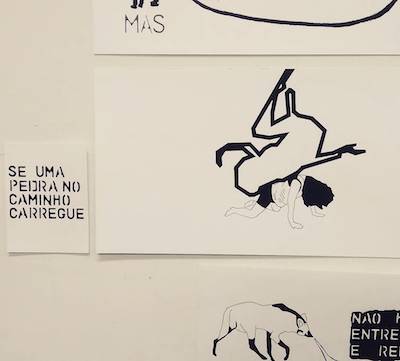 MAS
SE UMA
PEDRA NO
CAMINHO
CARREGUE
NÃO
ENTRE
E